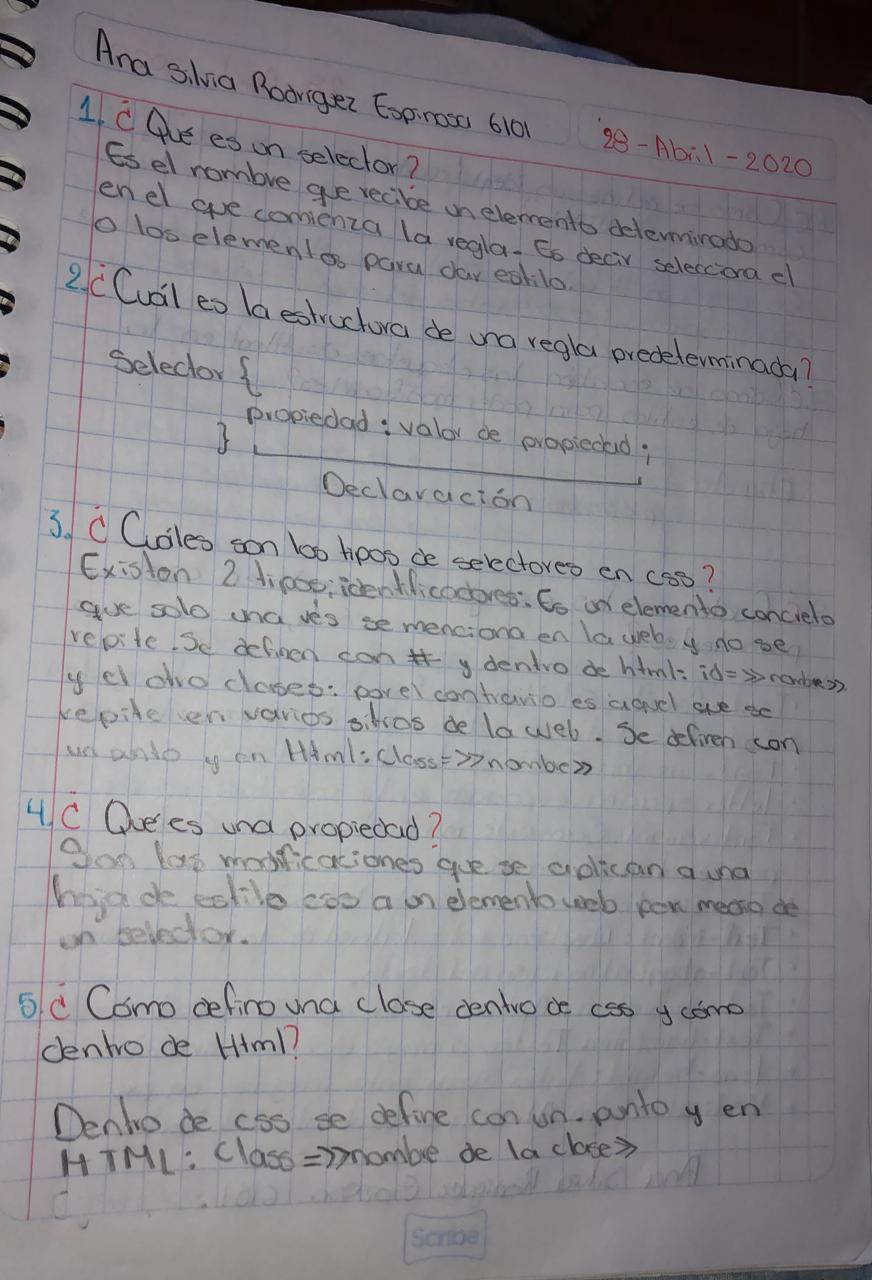 Ana Silvia Rodriguez Espinosa 6101
28-Abril-2020
1. ¿Que es un selector?
Es el nombre que recibe un elemento determinado
en el que comienza la regla. Es decir selecciona el
o los elementos para dar estilo.
2. ¿Cuál es la estructura de una regla predeterminada?
Selector {
propiedad: valor de propiedad;
}
Declaración
3. ¿Cuáles son los tipos de selectores en css?
Existen 2 tipos; identificadores: Es un elemento concreto
que solo una vés se menciona en la web y no se
repite. Se definen con # y dentro de html: id=»nombre»
y el otro clases: por el contrario es aquel que se
repite en varios sitios de la web. Se definen con
un punto y en Html: Class=»nombe»
4. ¿Que es una propiedad?
Son las modificaciones que se aplican a una
hoja de estilo css a un elemento web por medio de
un selector.
5. ¿Cómo defino una clase dentro de css y cómo
dentro de Html?
Dentro de css se define con un punto y en
HTML: Class=»nombre de la clase»
Scribe